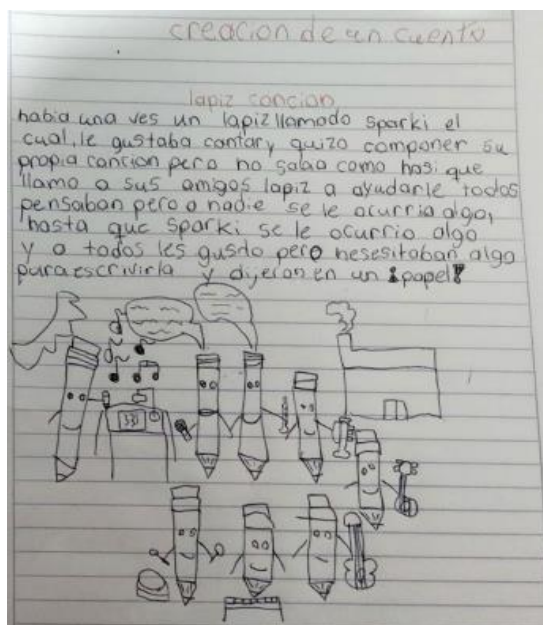 creacion de un cuento
lapiz concion
habia una ves un lapiz llamado sparki el
cual, le gustaba contar y quizo componer su
propia cancion pero no sabia como hasi que
llamo a sus amigos lapiz a ayudarle todos
pensaban pero a nadie se le ocurria algo,
hasta que sparki se le ocurrio algo
y a todos les gusdto pero nesesitaban algo
para escrivirla y dijeron en un ¡papel!